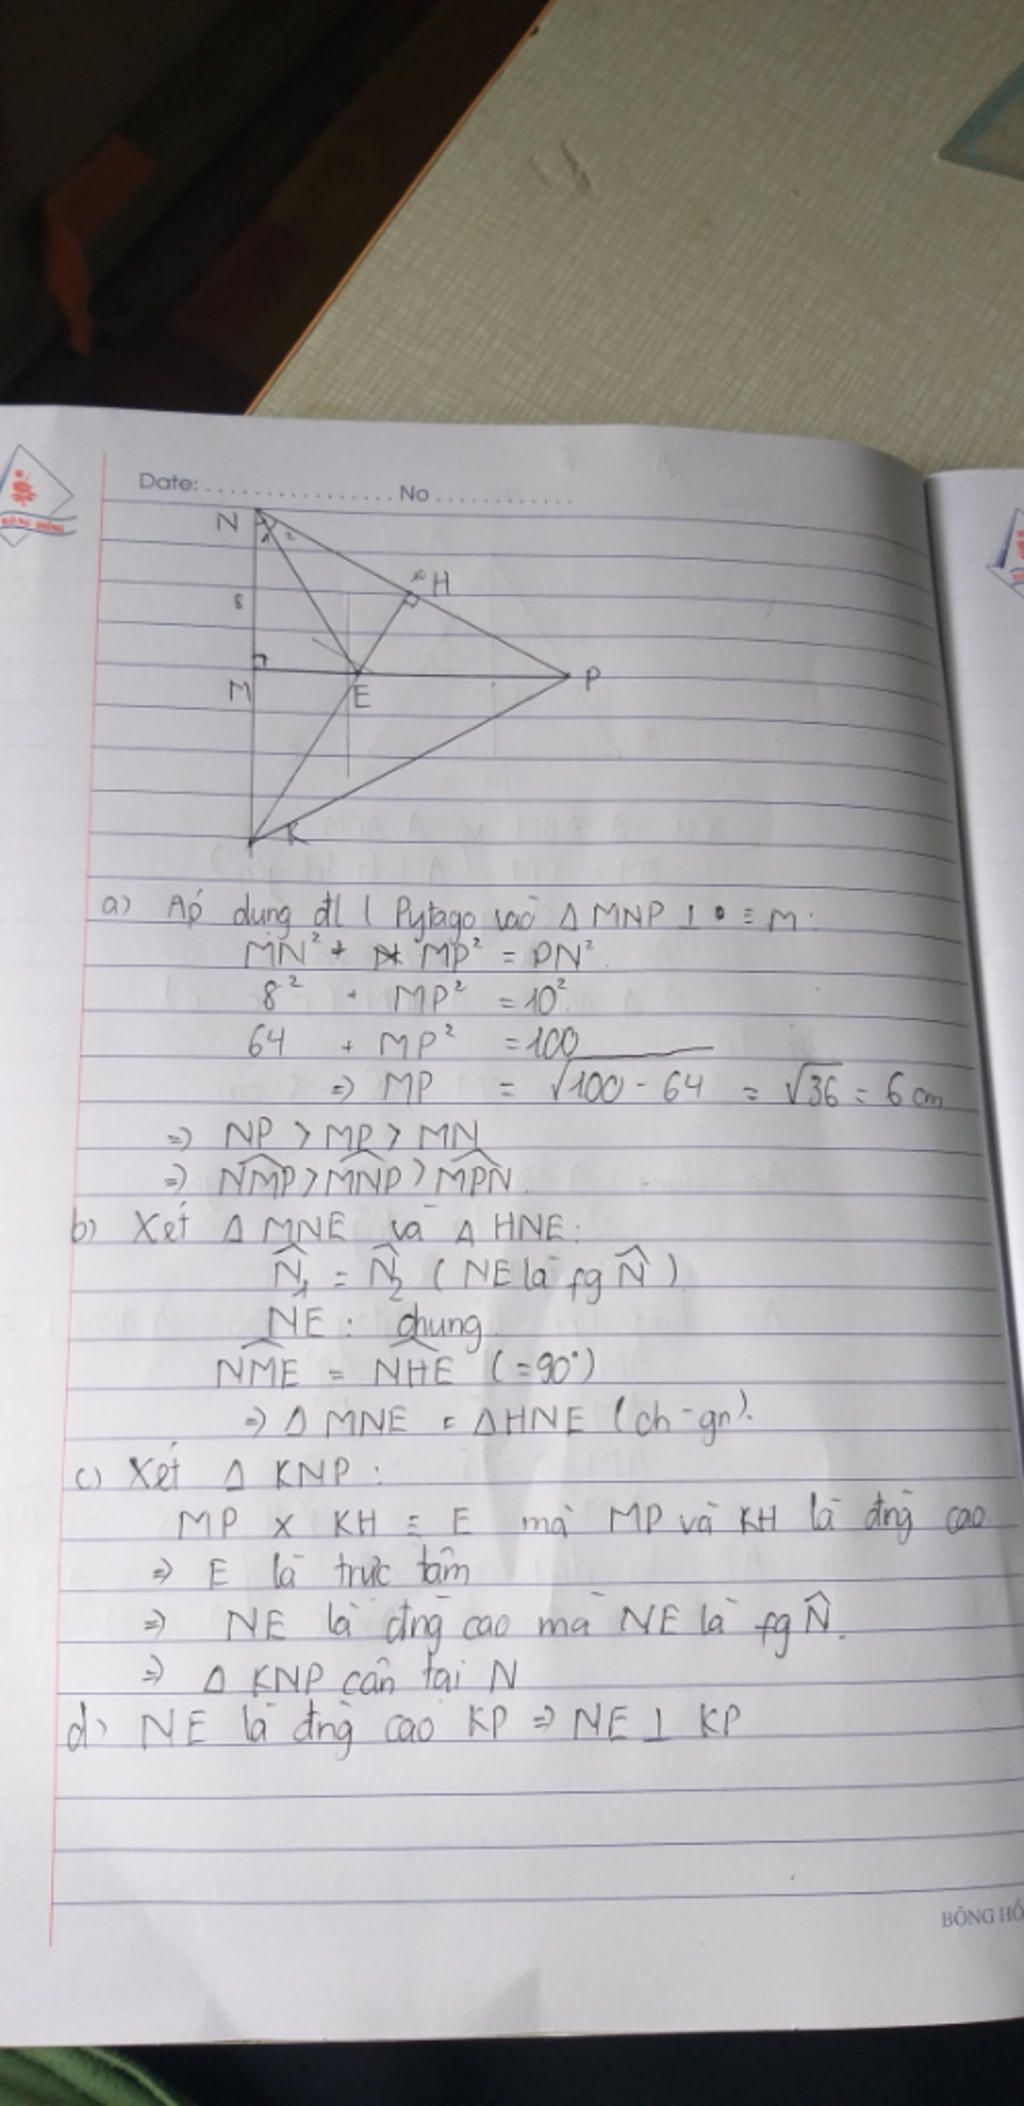 Date: ................ No ............
N
1 2
H
8
M
E
P
K
a) Áp dụng đl Pytago vào Δ MNP ⊥ ≡ M:
MN² + MP² = PN²
8² + MP² = 10²
64 + MP² = 100
=> MP = √100 - 64 = √36 = 6 cm
=> NP > MP > MN
=> NMP > MNP > MPN
b) Xét Δ MNE và Δ HNE:
N̂1 = N̂2 (NE là fg N̂)
NE: chung
NME = NHE (=90°)
=> Δ MNE = Δ HNE (ch-gn).
c) Xét Δ KNP:
MP x KH ≡ E mà MP và KH là đng cao
=> E là trực tâm
=> NE là đng cao mà NE là fg N̂.
=> Δ KNP cân tại N
d) NE là đng cao KP => NE ⊥ KP
BÔNG HỒ